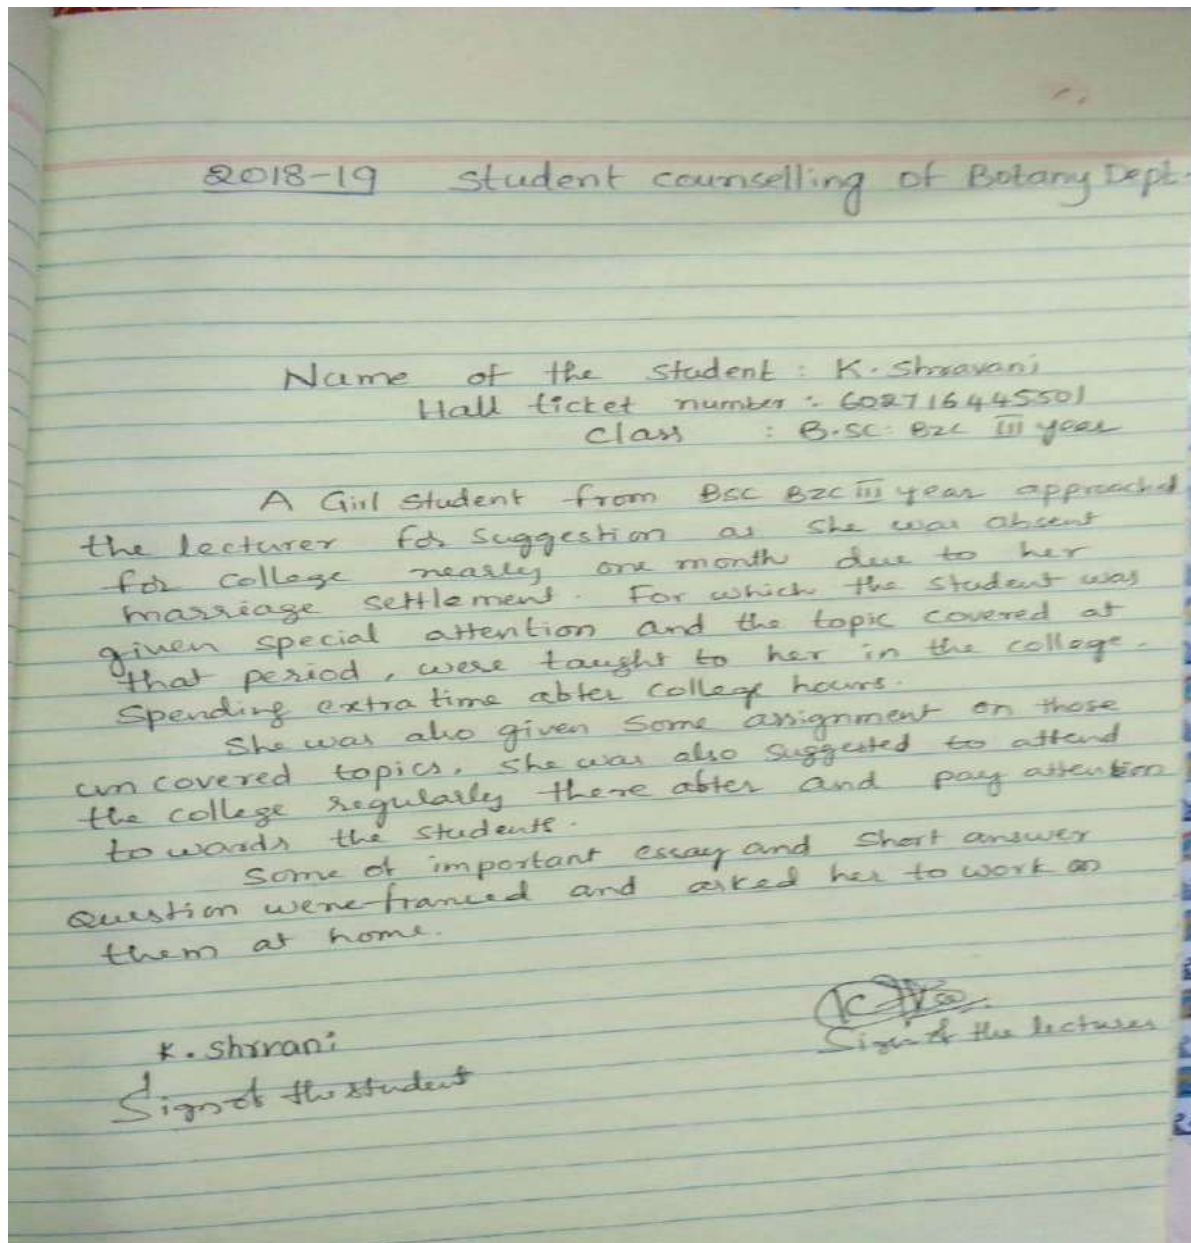 2018-19 Student counselling of Botany Dept.
Name of the Student : K. Shravani
Hall ticket number : 602716445501
Class : B.SC. BZC III year
A Girl Student from BSC BZC III year approached
the lecturer for Suggestion as she was absent
for college nearly one month due to her
marriage settlement. For which the student was
given special attention and the topic covered at
that period, were taught to her in the college.
Spending extra time abter college hours.
She was also given some assignment on those
uncovered topics. She was also suggested to attend
the college regularly there abter and pay attention
towards the students.
Some of important essay and short answer
Question were framed and asked her to work on
them at home.
K. Shrvani
Sign of the student
Sign of the lecturer